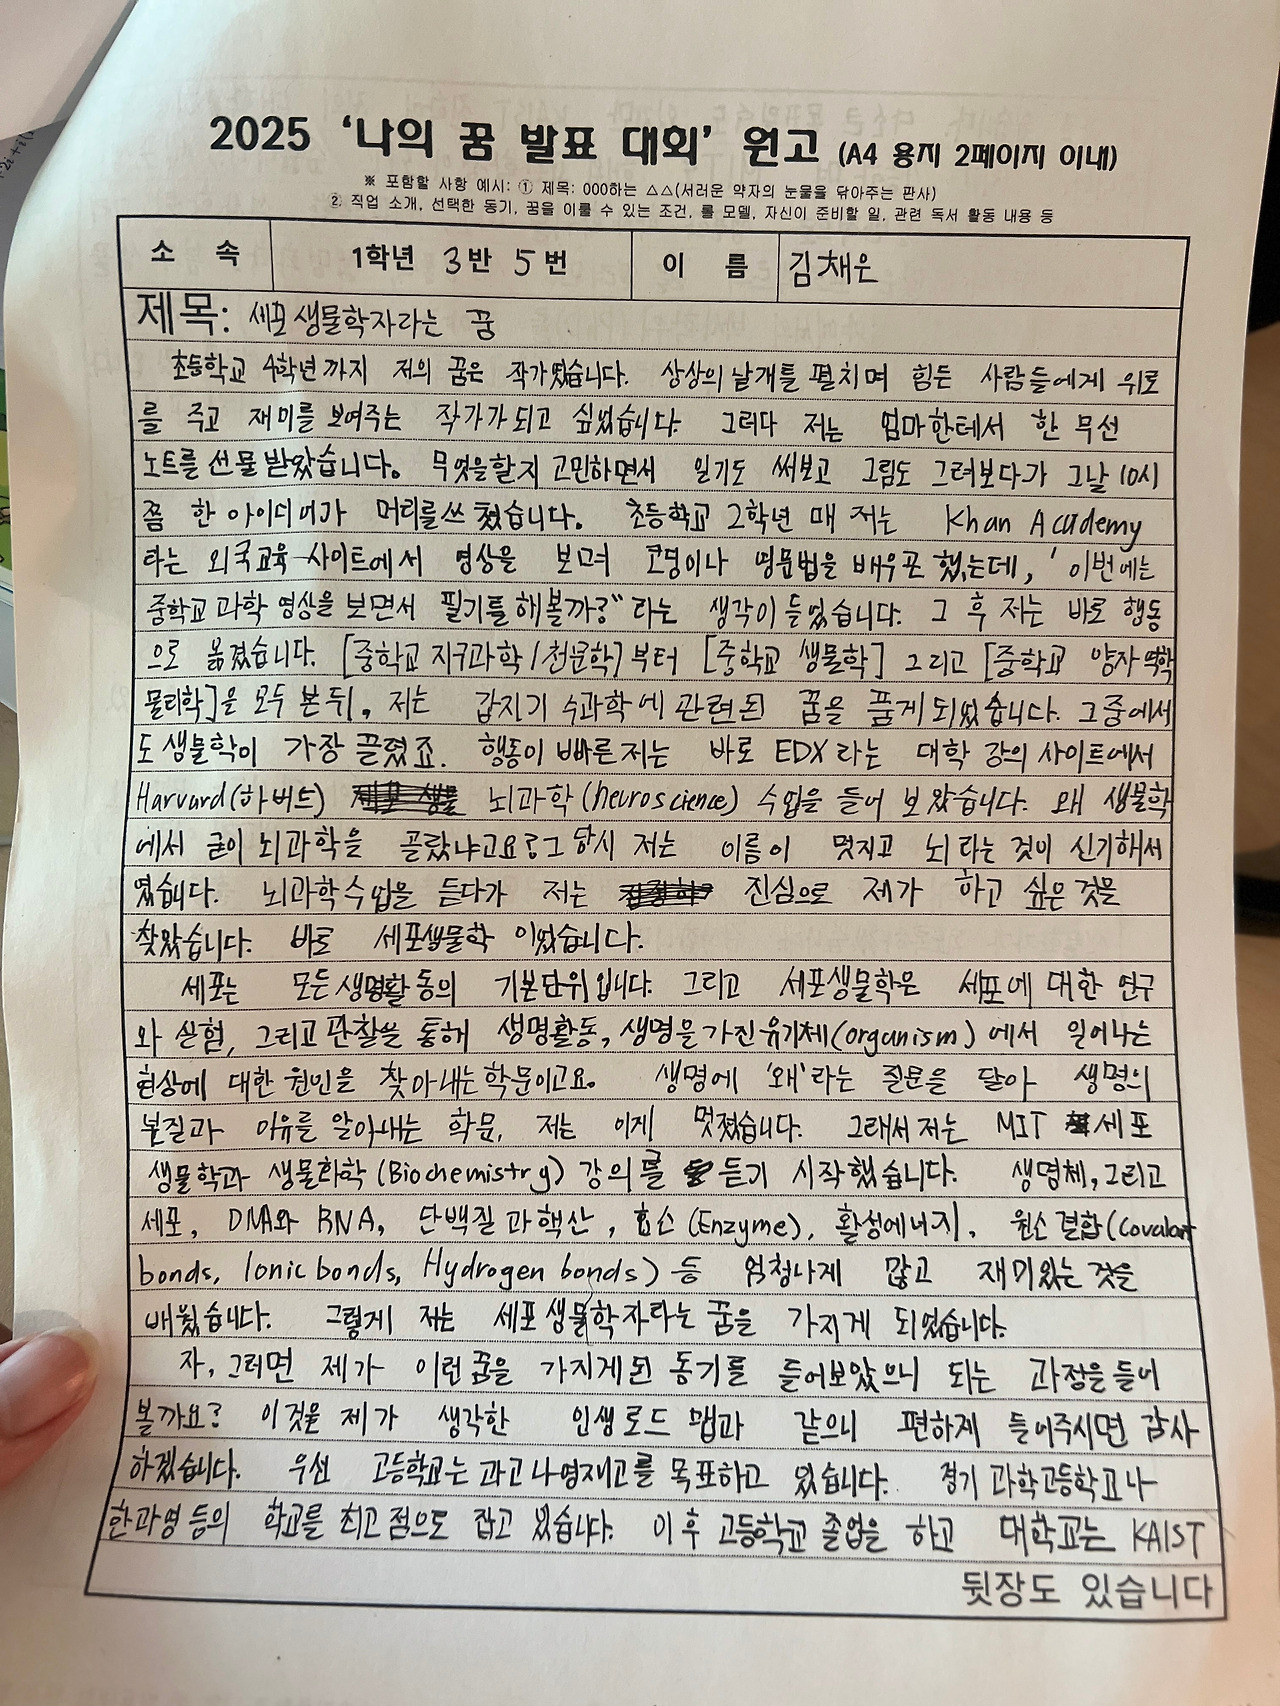 2025 '나의 꿈 발표 대회' 원고 (A4 용지 2페이지 이내)
※ 포함할 사항 예시: ① 제목: 000하는 △△(서러운 약자의 눈물을 닦아주는 판사)
② 직업 소개, 선택한 동기, 꿈을 이룰 수 있는 조건, 롤 모델, 자신이 준비할 일, 관련 독서 활동 내용 등
소 속 1학년 3반 5번 이 름 김채은
제목: 세포 생물학자라는 꿈
초등학교 4학년까지 저의 꿈은 작가였습니다. 상상의 날개를 펼치며 힘든 사람들에게 위로
를 주고 재미를 보여주는 작가가 되고 싶었습니다. 그러다 저는 엄마한테서 한 무선
노트를 선물 받았습니다. 무엇을할지 고민하면서 일기도 써보고 그림도 그려보다가 그날 10시
쯤 한 아이디어가 머리를쓰쳤습니다. 초등학교 2학년 때 저는 Khan Academy
라는 외국교육 사이트에서 영상을 보며 코딩이나 영문법을 배우곤 했는데, '이번에는
중학교 과학 영상을 보면서 필기를 해볼까?" 라는 생각이 들었습니다. 그 후 저는 바로 행동
으로 옮겼습니다. [중학교 지구과학/천문학]부터 [중학교 생물학] 그리고 [중학교 양자 역학
물리학]을 모두 본 뒤, 저는 갑자기 수과학에 관련된 꿈을 품게 되었습니다. 그중에서
도 생물학이 가장 끌렸죠. 행동이 빠른 저는 바로 EDX 라는 대학 강의 사이트에서
Harvard(하버드) 뇌과학 (neuroscience) 수업을 들어 보았습니다. 왜 생물학
에서 굳이 뇌과학을 골랐냐고요? 그 당시 저는 이름이 멋지고 뇌라는 것이 신기해서
였습니다. 뇌과학수업을 듣다가 저는 진심으로 제가 하고 싶은 것을
찾았습니다. 바로 세포생물학 이었습니다.
세포는 모든 생명활동의 기본단위입니다. 그리고 세포생물학은 세포에 대한 연구
와 실험, 그리고 관찰을 통해 생명활동, 생명을 가진 유기체(organism) 에서 일어나는
현상에 대한 원인을 찾아내는 학문이고요. 생명에 '왜'라는 질문을 달아 생명의
본질과 이유를 알아내는 학문, 저는 이게 멋졌습니다. 그래서 저는 MIT 세포
생물학과 생물화학 (Biochemistry) 강의를 듣기 시작했습니다. 생명체, 그리고
세포, DNA와 RNA, 단백질과 핵산, 효소 (Enzyme), 활성에너지, 원소 결합 (Covalant
bonds, Ionic bonds, Hydrogen bonds) 등 엄청나게 많고 재미있는 것을
배웠습니다. 그렇게 저는 세포 생물학자라는 꿈을 가지게 되었습니다.
자, 그러면 제가 이런 꿈을 가지게된 동기를 들어보았으니 되는 과정을 들어
볼까요? 이것은 제가 생각한 인생 로드 맵과 같으니 편하게 들어주시면 감사
하겠습니다. 우선 고등학교는 과고나 영재고를 목표하고 있습니다. 경기 과학고등학교나
한과영 등의 학교를 최고 점으로 잡고 있습니다. 이후 고등학교 졸업을 하고 대학교는 KAIST
뒷장도 있습니다